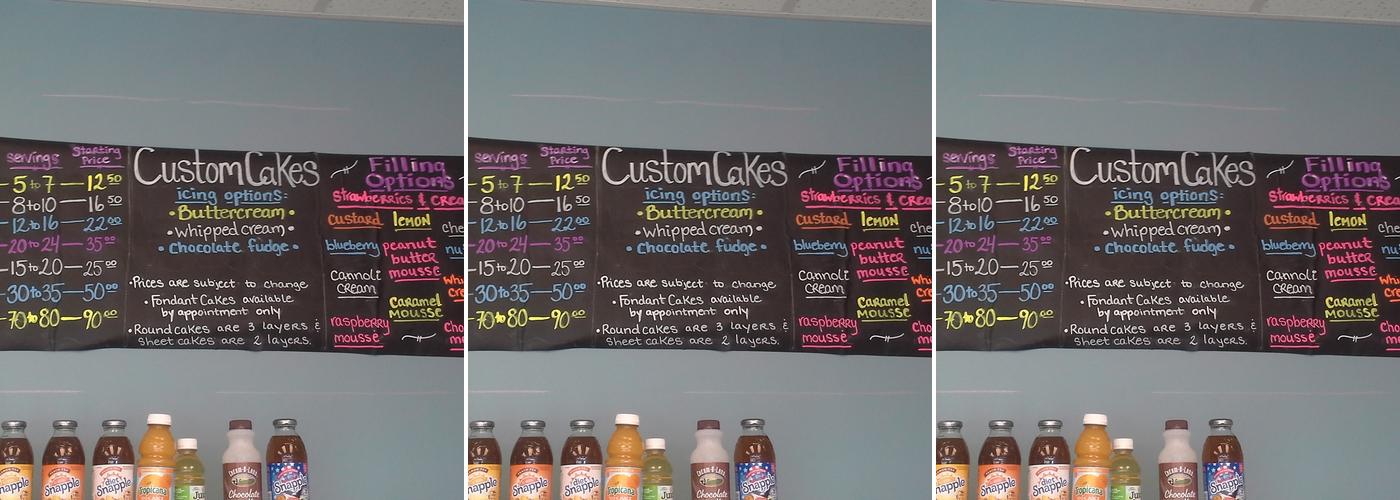 Servings Starting Price
5 to 7 — 12 50
8 to 10 — 16 50
12 to 16 — 22 00
20 to 24 — 35 00
15 to 20 — 25 00
30 to 35 — 50 00
70 to 80 — 90 00
Custom Cakes
icing options:
• Buttercream •
• whipped cream •
• Chocolate fudge •
• Prices are subject to change
• Fondant Cakes available
by appointment only
• Round cakes are 3 layers &
Sheet cakes are 2 layers.
Filling
Options
Strawberries &
custard
blueberry
Cannoli
cream
raspberry
mousse
lemon
peanut
butter
mousse
Caramel
Mousse
Snapple
Snapple
diet
Snapple
Tropicana
Cream-O-Land
Chocolate
Snapple
Servings Starting Price
5 to 7 — 12 50
8 to 10 — 16 50
12 to 16 — 22 00
20 to 24 — 35 00
15 to 20 — 25 00
30 to 35 — 50 00
70 to 80 — 90 00
Custom Cakes
icing options:
• Buttercream •
• whipped cream •
• Chocolate fudge •
• Prices are subject to change
• Fondant Cakes available
by appointment only
• Round cakes are 3 layers &
Sheet cakes are 2 layers.
Filling
Options
Strawberries &
custard
blueberry
Cannoli
cream
raspberry
mousse
lemon
peanut
butter
mousse
Caramel
Mousse
Snapple
Snapple
diet
Snapple
Tropicana
Cream-O-Land
Chocolate
Snapple
Servings Starting Price
5 to 7 — 12 50
8 to 10 — 16 50
12 to 16 — 22 00
20 to 24 — 35 00
15 to 20 — 25 00
30 to 35 — 50 00
70 to 80 — 90 00
Custom Cakes
icing options:
• Buttercream •
• whipped cream •
• Chocolate fudge •
• Prices are subject to change
• Fondant Cakes available
by appointment only
• Round cakes are 3 layers &
Sheet cakes are 2 layers.
Filling
Options
Strawberries &
custard
blueberry
Cannoli
cream
raspberry
mousse
lemon
peanut
butter
mousse
Caramel
Mousse
Snapple
Snapple
diet
Snapple
Tropicana
Cream-O-Land
Chocolate
Snapple